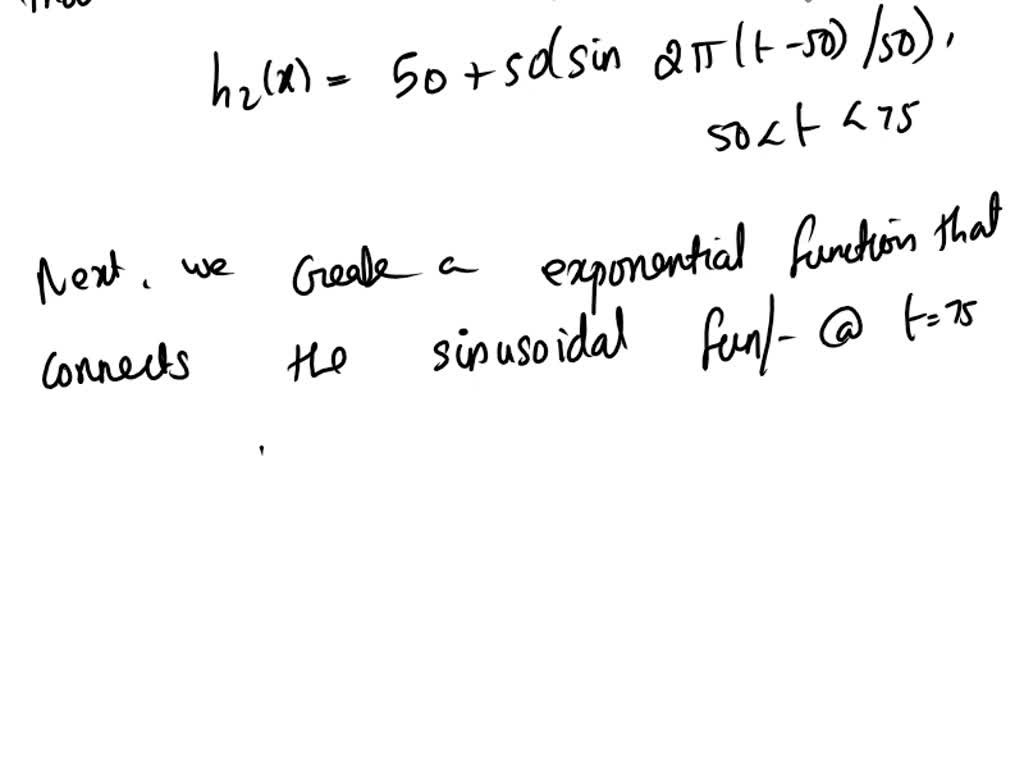 h₂(x) = 50 + 50(sin 2π(t-50)/50),
50 < t < 75
Next, we create a exponential function that
connects the sinusoidal fun/- @ t=75